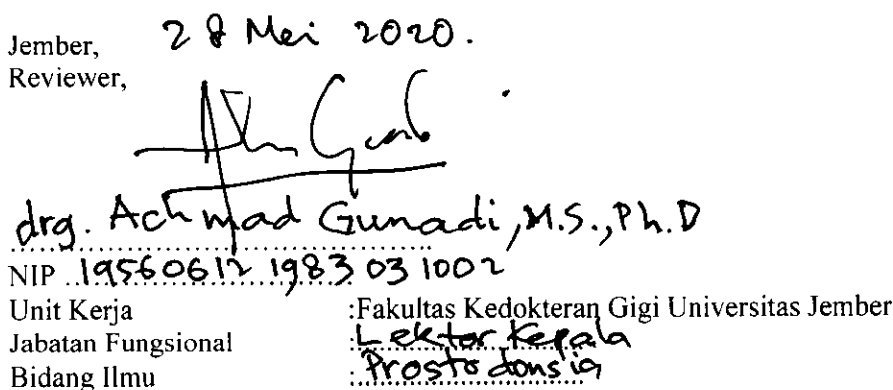 Jember, 28 Mei 2020.
Reviewer,
drg. Achmad Gunadi, M.S., Ph.D
NIP 19560612 1983 03 1002
Unit Kerja :Fakultas Kedokteran Gigi Universitas Jember
Jabatan Fungsional :Lektor Kepala
Bidang Ilmu : Prostodonsia